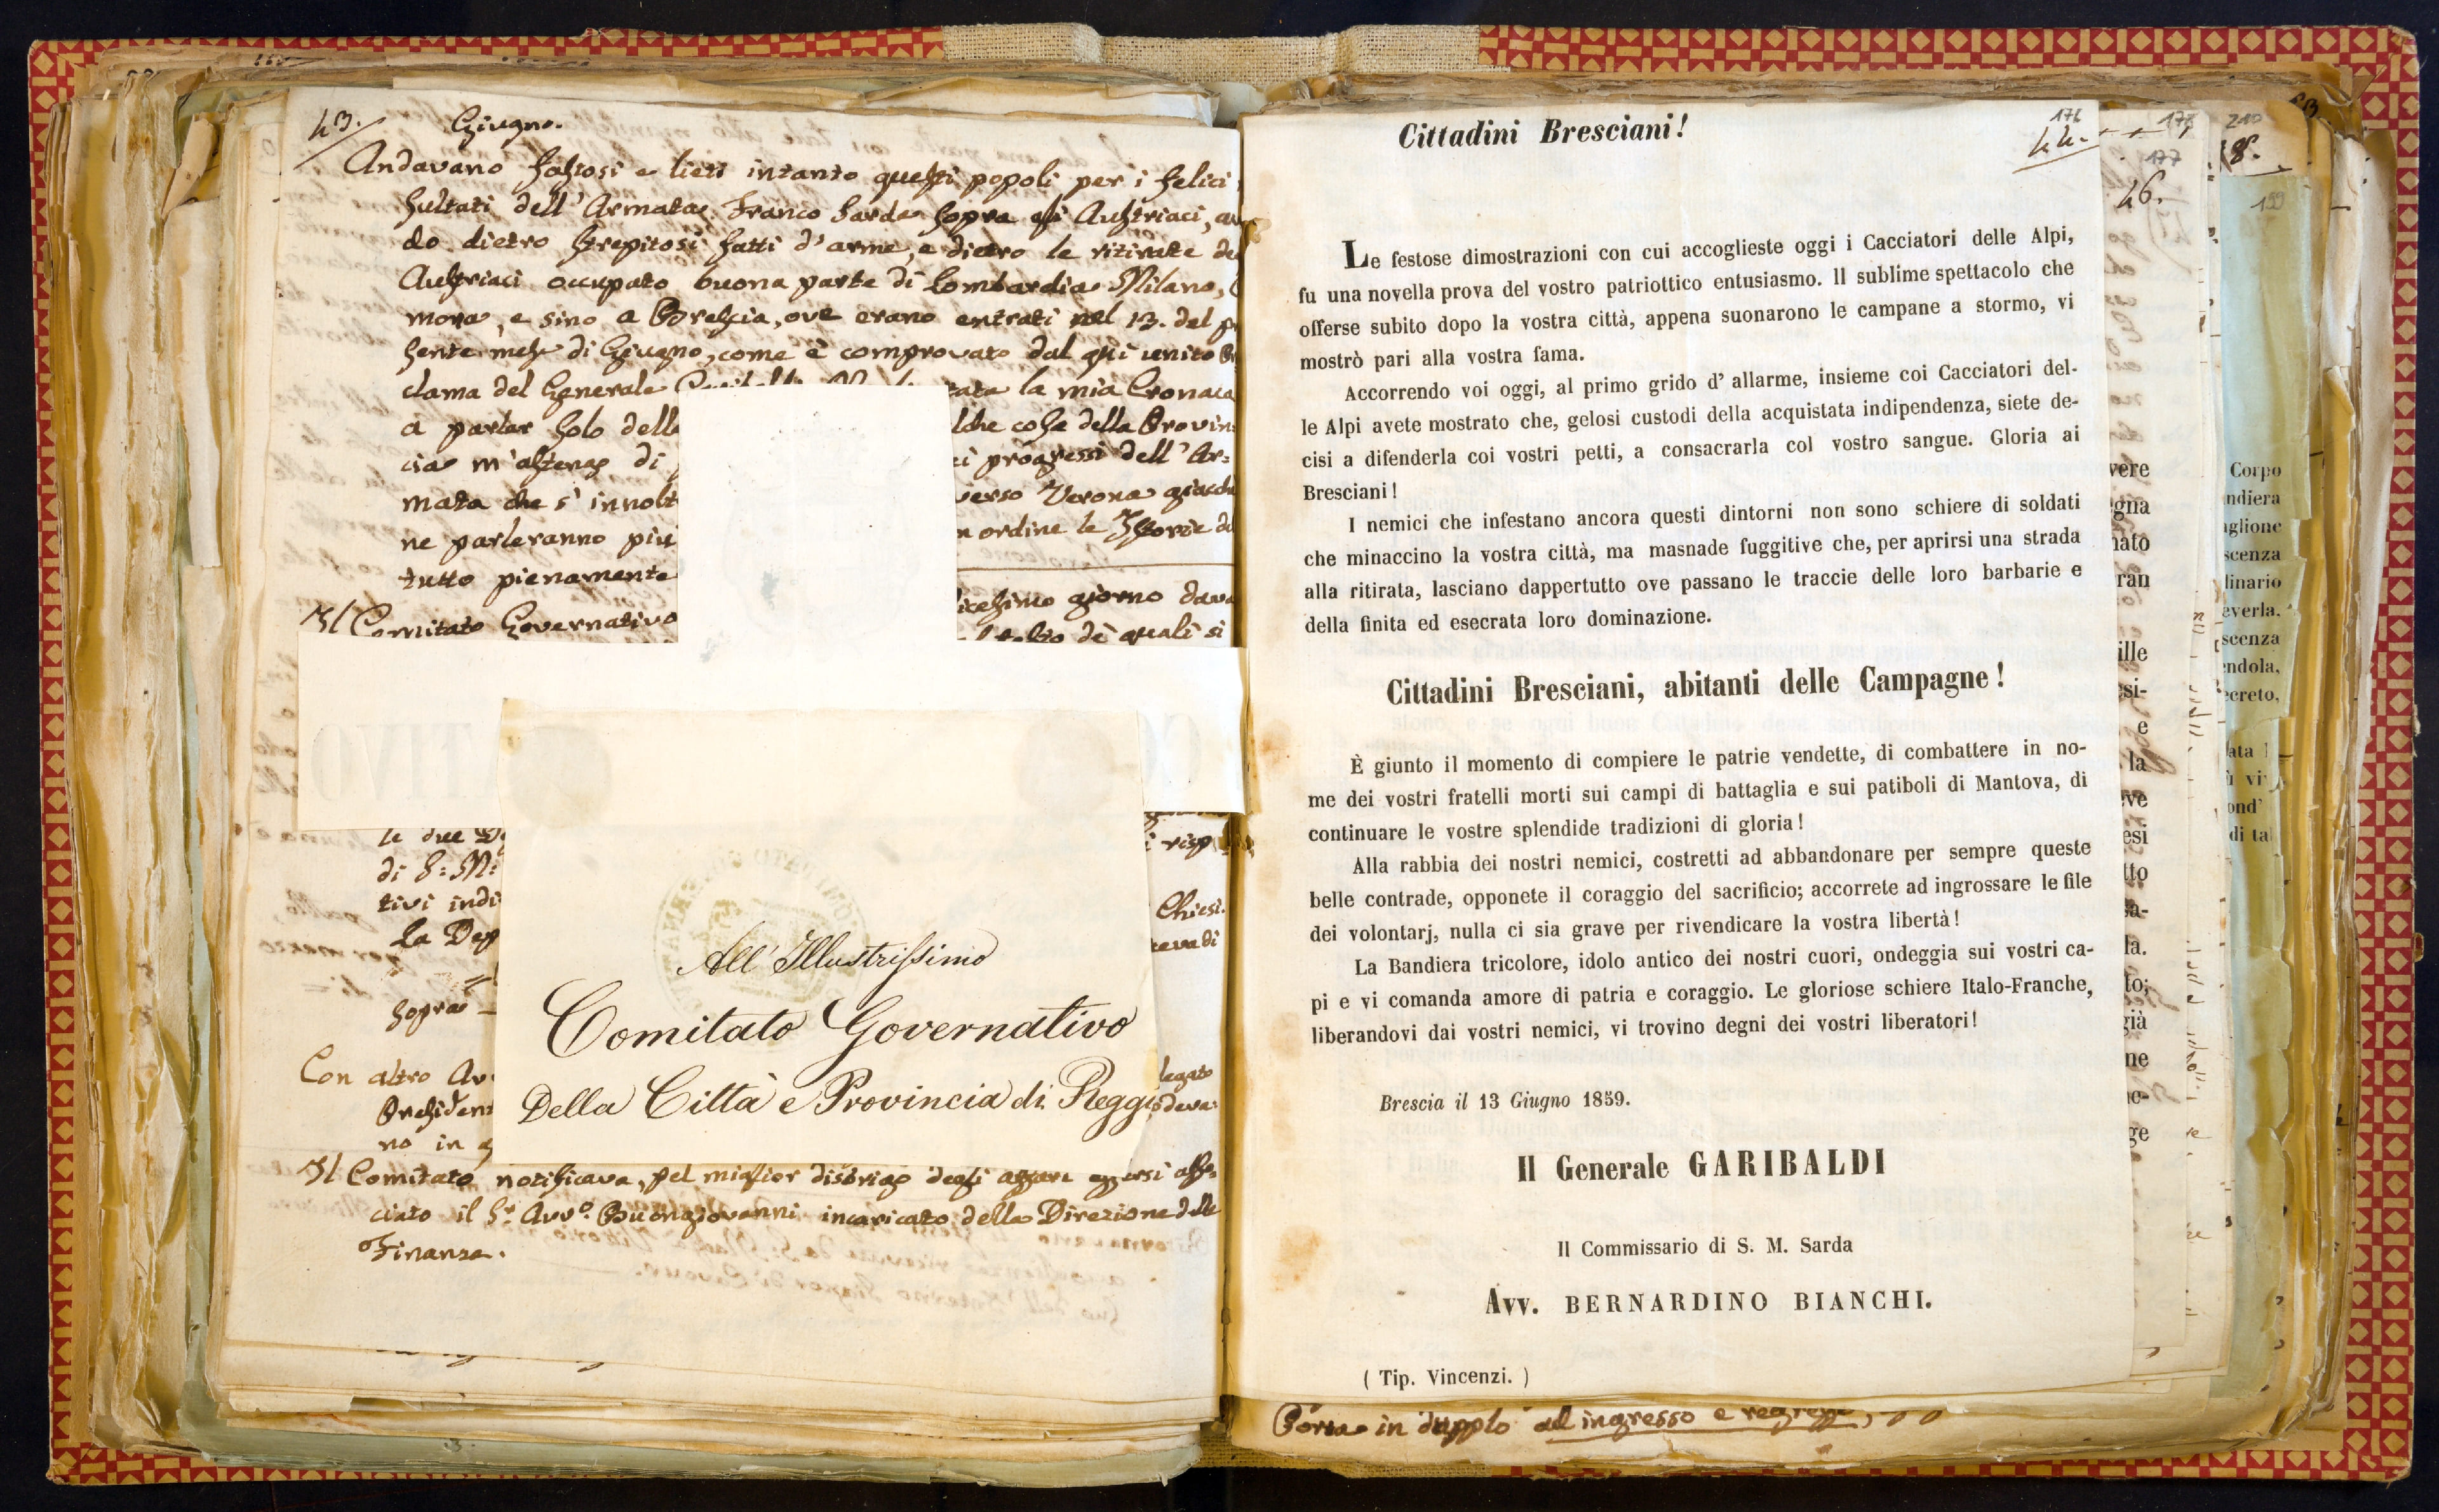 43.
Giugno.
Andavano fastosi e lieti intanto questi popoli per i felici
sultati dell'Armata Franco Sarda sopra gli Austriaci,
do dietro strepitosi fatti d'arme, e dietro le ritirate de
Austriaci occupato buona parte di Lombardia Milano,
mona, e sino a Brescia, ove erano entrati nel 13. del
sente mese di Giugno, come è comprovato dal qui unito
clama del Generale la mia Cronaca
a parlar solo dell cose della Provin=
cia m'astengo di progressi dell'Ar=
mata che s'innolt verso Verona
ne parleranno più ordine le Istorie
tutto pienamente
Il Comitato Governativo giorno dava
de quali si
le due
di S: M:
tivi indi
La Dep
sopra
Con altro Av
Presiden
no in
Chiesi.
legato
All' Illustrissimo
Comitato Governativo
Della Città e Provincia di Reggio
Il Comitato notificava, pel miglior disbrigo degli affari essersi asso=
ciato il Sr. Avvo. Buongiovanni incaricato della Direzione delle
Finanze.
176
44.
Cittadini Bresciani!
Le festose dimostrazioni con cui accoglieste oggi i Cacciatori delle Alpi,
fu una novella prova del vostro patriottico entusiasmo. Il sublime spettacolo che
offerse subito dopo la vostra città, appena suonarono le campane a stormo, vi
mostrò pari alla vostra fama.
Accorrendo voi oggi, al primo grido d' allarme, insieme coi Cacciatori del-
le Alpi avete mostrato che, gelosi custodi della acquistata indipendenza, siete de-
cisi a difenderla coi vostri petti, a consacrarla col vostro sangue. Gloria ai
Bresciani!
I nemici che infestano ancora questi dintorni non sono schiere di soldati
che minaccino la vostra città, ma masnade fuggitive che, per aprirsi una strada
alla ritirata, lasciano dappertutto ove passano le traccie delle loro barbarie e
della finita ed esecrata loro dominazione.
Cittadini Bresciani, abitanti delle Campagne!
È giunto il momento di compiere le patrie vendette, di combattere in no-
me dei vostri fratelli morti sui campi di battaglia e sui patiboli di Mantova, di
continuare le vostre splendide tradizioni di gloria!
Alla rabbia dei nostri nemici, costretti ad abbandonare per sempre queste
belle contrade, opponete il coraggio del sacrificio; accorrete ad ingrossare le file
dei volontarj, nulla ci sia grave per rivendicare la vostra libertà!
La Bandiera tricolore, idolo antico dei nostri cuori, ondeggia sui vostri ca-
pi e vi comanda amore di patria e coraggio. Le gloriose schiere Italo-Franche,
liberandovi dai vostri nemici, vi trovino degni dei vostri liberatori!
Brescia il 13 Giugno 1859.
Il Generale GARIBALDI
Il Commissario di S. M. Sarda
Avv. BERNARDINO BIANCHI.
( Tip. Vincenzi. )
in dupplo ad ingresso e
177
46.
vere
gna
nato
ran
ille
si-
e
la
ve
esi
tto
sa-
la.
to;
già
ne
ge
210
8.
199
Corpo
ndiera
aglione
scenza
linario
everla.
scenza
endola,
ecreto,
ata
vi
ond'
di tal